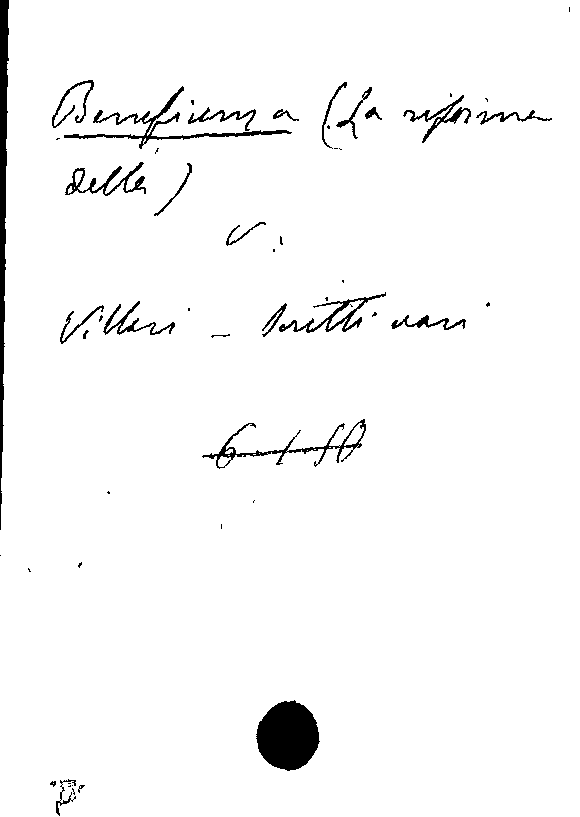 Beneficenza (La riforma
della)
v.
Villari - Scritti vari
6-1-50